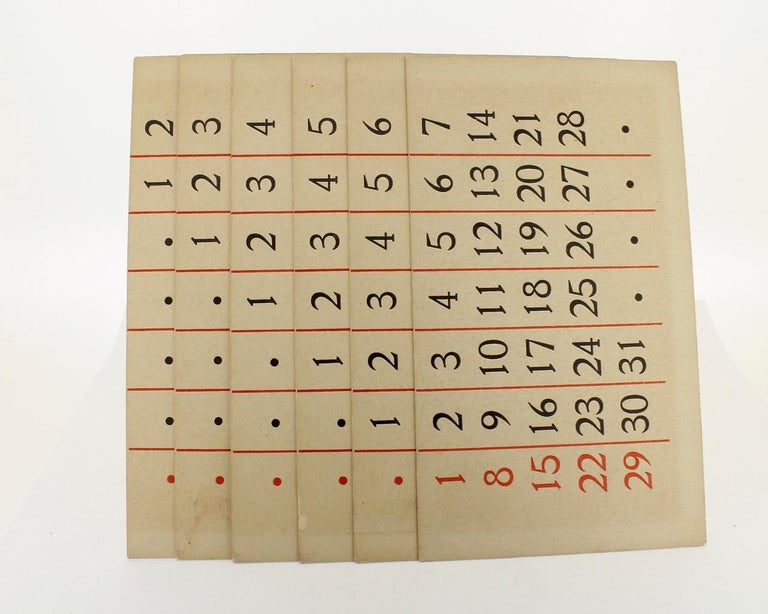 • • • • • 1 2
• • • • 1 2 3
• • • 1 2 3 4
• • 1 2 3 4 5
• 1 2 3 4 5 6
1 2 3 4 5 6 7
8 9 10 11 12 13 14
15 16 17 18 19 20 21
22 23 24 25 26 27 28
29 30 31 • • • •